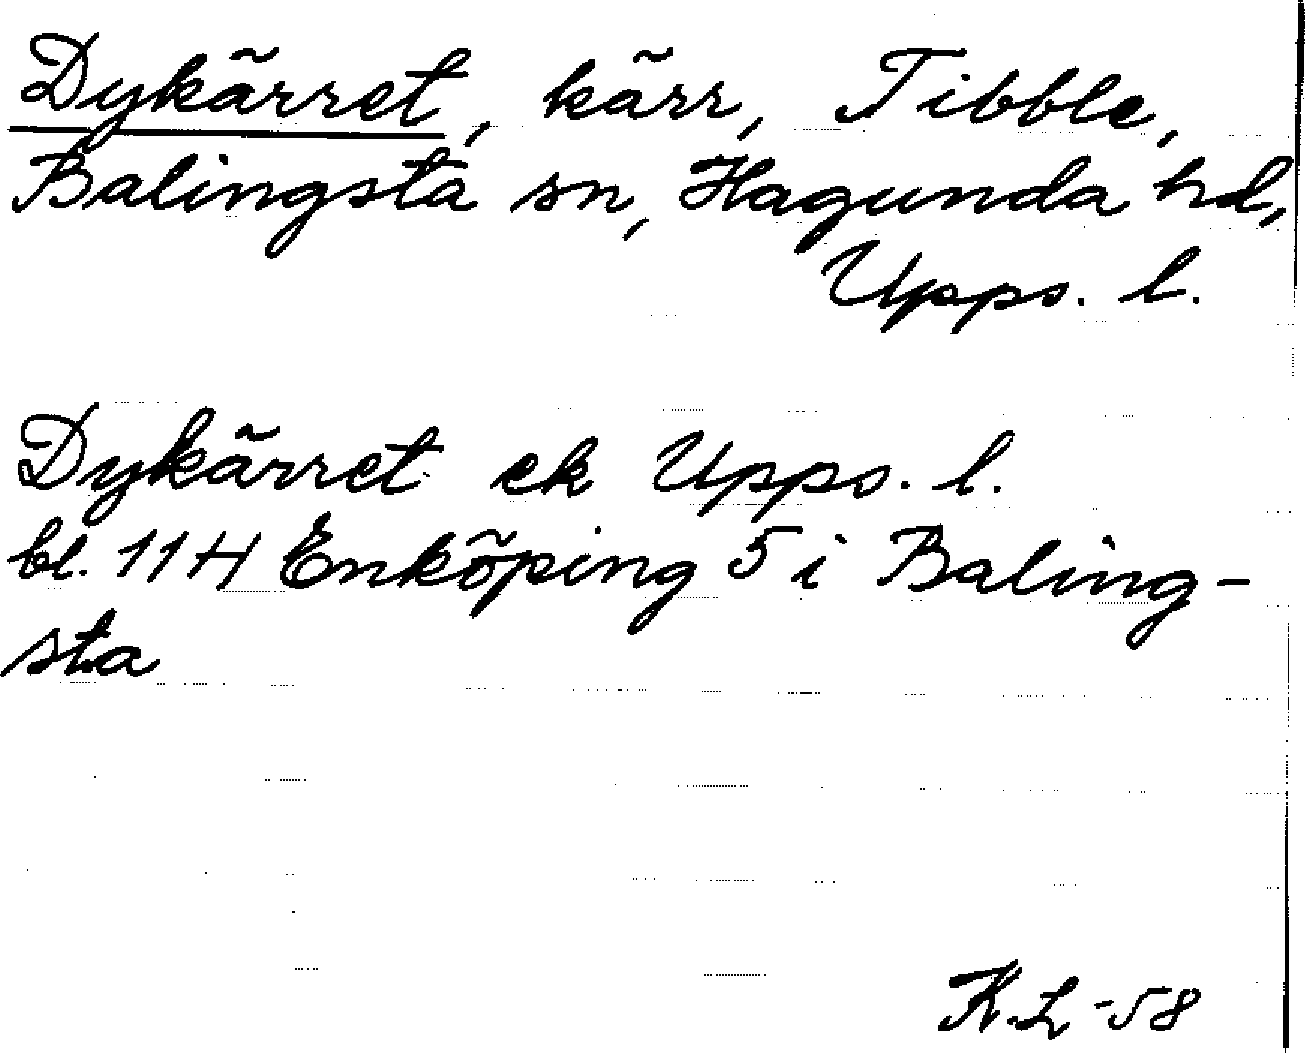 Dykärret, kärr, Tibble,
Balingsta sn, Hagunda hd,
Upps. l.
Dykärret ek Upps. l.
bl. 11H Enköping 5 i Baling-
sta
K.L -58